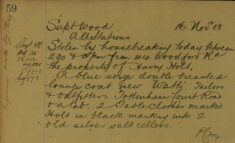 59
Supt Wood
16 Nov 08
All Stations
Stolen by housebreaking today between
2.30 & 6pm from 44 Woodford Rd
the property of Harry Holt,
A blue serge double breasted
lounge coat & vest Watts Tailors
& outfitters Tottenham Court Road
on tab. 2 table clothes marked
Holt in black marking ink 2
old silver salt cellars.